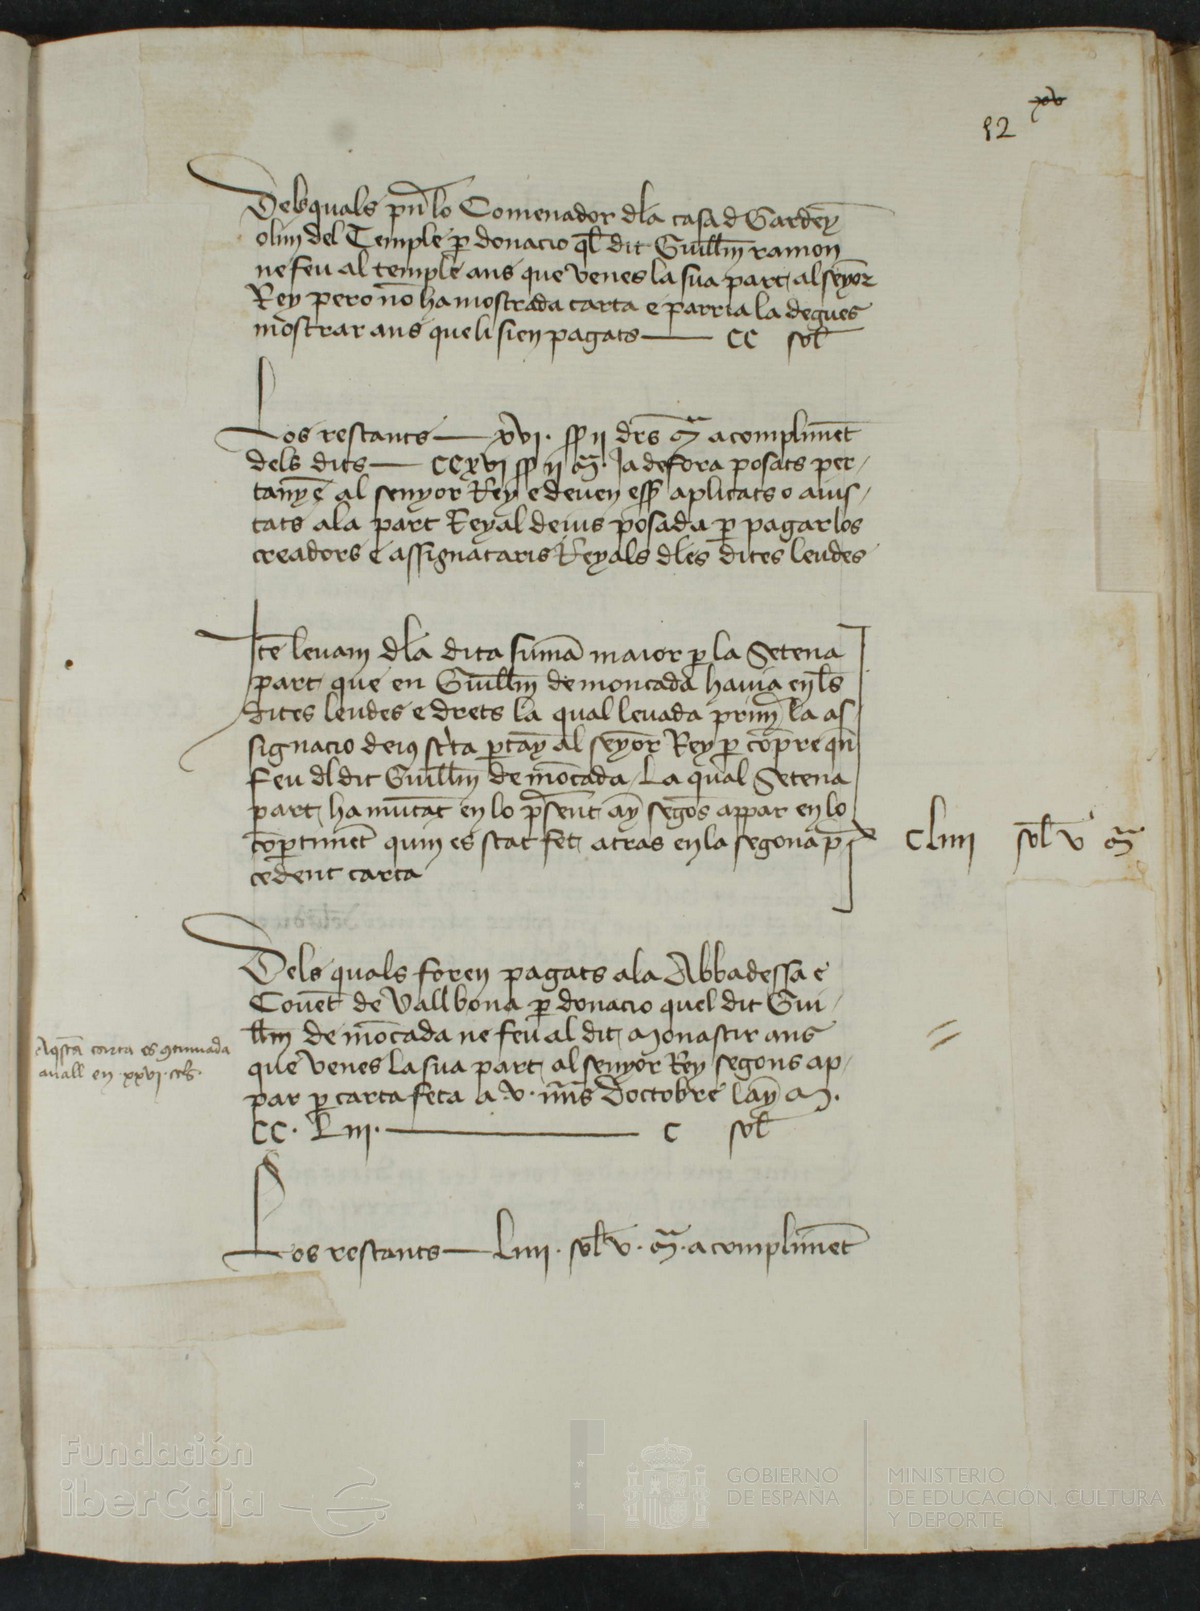 xv
12
Dels quals pñ lo Comenador dla casa d Gardeÿ
olim del Temple p donacio ql dit Guillm ramon
ne feu al temple ans que venes la sua part al seyor
Rey pero no ha mostrada carta e parria la degues
mostrar ans que li sien pagats — CC sol
Los restants — xvi. ss ii drs m a compliment
dels dits — CCxvi ss ii m. Ja defora posats per-
tanye al senyor Rey e deuen ess aplicats o aius-
tats ala part Reyal deius posada p pagar los
creadors e assignataris Reyals dles dites leudes
Ite leuam dla dita suma maior p la Setena
part que en Guillm de moncada hauia en ls
dites leudes e drets la qual leuada prim la as
signacio deius scta ptay al seyor Rey p copre qn
feu dl dit Guillm de mocada La qual Setena
part ha muntat en lo psent ay segos appar en lo
coptiment quin es stat fet atras en la segona p
cedent carta
CLiiii sol v m
Dels quals foren pagats ala Abbadessa e
Couet de Vallbona p donacio quel dit Gui-
llm de mocada ne feu al dit Monastir ans
que venes la sua part al senyor Rey segons ap-
par p carta feta a .v. nns doctobre lay M.
CC. Liii. — C sol
Aqsta carta es continuada
auall en .xxvi. cts.
Los restants — Liiii. sol v. m. a compliment
Fundación
iberCaja
GOBIERNO
DE ESPAÑA
MINISTERIO
DE EDUCACIÓN, CULTURA
Y DEPORTE